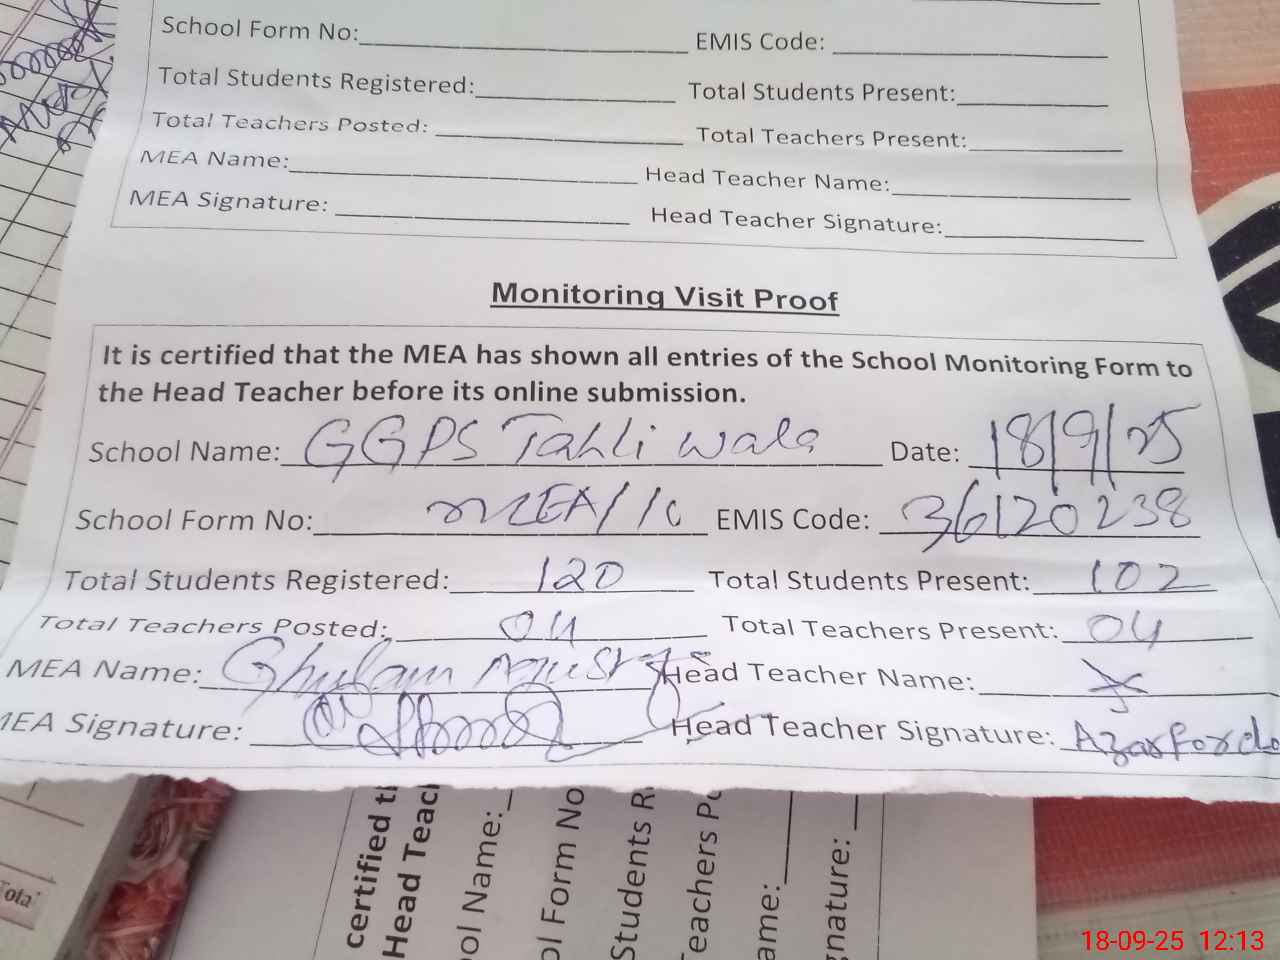 School Form No: EMIS Code:
Total Students Registered: Total Students Present:
Total Teachers Posted: Total Teachers Present:
MEA Name: Head Teacher Name:
MEA Signature: Head Teacher Signature:
Monitoring Visit Proof
It is certified that the MEA has shown all entries of the School Monitoring Form to
the Head Teacher before its online submission.
School Name: GGPS Tahli Wala Date: 18/9/25
School Form No: MEA/10 EMIS Code: 36120238
Total Students Registered: 120 Total Students Present: 102
Total Teachers Posted: 04 Total Teachers Present: 04
MEA Name: Ghulam Head Teacher Name:
MEA Signature: Head Teacher Signature:
certified
Head Teac
ol Name:
ol Form No
Students R
Teachers Po
ame:
gnature:
Tota
18-09-25 12:13